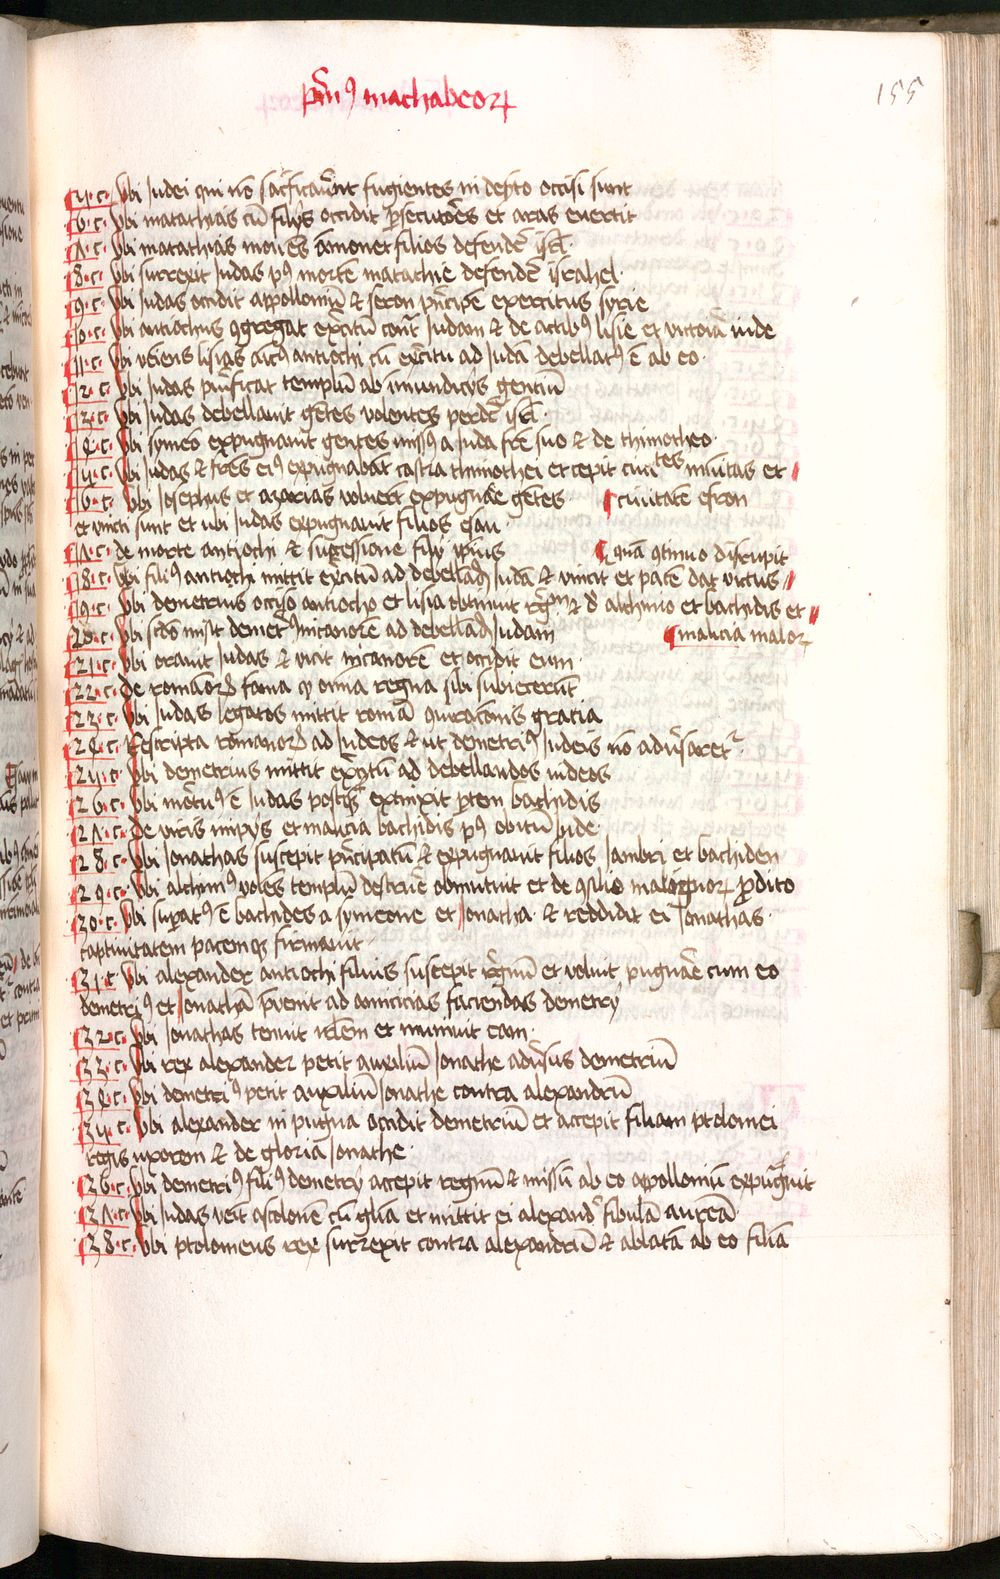 pm̄ꝰ machabeoꝝ
155
5.c. Vbi Judei qui nō sac̄ficauūt fugientes in desto occisi sunt
6.c. Vbi matathias cū filijs occidit ꝑsecutōes et aras euertit
7.c. Vbi matathias moriēs āmonet filios defendē isrl̄.
8.c. Vbi surrexit Judas pꝰ mortē matathie defendē israhel.
9.c. Vbi Judas occidit appolloniū & seron pn̄cipē exercitus syrie
10.c. Vbi antiochus ꝯgregat exc̄itū cont̄ Judam & de actibꝰ lisie et victoriā inde
11.c. Vbi veiens lisias antiochi cū exc̄itu ad Judā debellatꝰ ē ab eo.
12.c Vbi Judas pur̄ficat templū ab īmundicijs gentiū
13.c. Vbi Judas debellauit gētes volentes perdē isrl̄.
14.c. Vbi symeō expugnauit gentes missꝰ a Juda frē suo & de thimotheo.
15.c. Vbi Judas & frēs eiꝰ expugnabāt castra thimothei et cepit ciuitates munitas et
16.c. Vbi Josephus et azarias voluerūt expugnāe gētes ciuitatē efron
et victi sunt et ubi Judas expugnauit filios esau.
17.c. de morte antiochi & successione filij ipsius quā ꝯtinuo disrupit
18.c. Vbi filiꝰ antiochi mittit exc̄itū ad debellād̄ Judā & vincit et pacē dat victus
19.c. Vbi demetrius occiso antiocho et lisia obtinuit rḡm & d̄ alchimo et bachidis et
20.c. Vbi scd̄o misit demetꝰ nicanorē ad debellād̄ Judam malicia maloꝝ
21.c. Vbi orauit Judas & vicit nicanorē et occidit eum.
22.c. De romāoꝝ fama qꝫ omnia regna sibi subiecerūt
23.c. Vbi Judas legatos mittit romā ꝯuerac̄onis gratia
24.c. Rescripta romanoꝝ ad Judeos & ut demetriꝰ Judeis nō adūsaretᷣ.
25.c. Vbi demetrius mittit exc̄itū ad debellandos iudeos
26.c. Vbi mōtuꝰ ē Judas postqꝫ extinxit ꝑtem bachidis
27.c. De viris impijs et malicia bachidis pꝰ obitū Jude.
28.c. Vbi Jonathas suscepit pn̄cipatū & expugnauit filios Jambri et bachiden
29.c. Vbi alchimꝰ volēs templū destruē obmutuit et de ꝯsilio malignoꝝ ꝓdito
30.c. Vbi suꝑatꝰ ē bachides a symeone et Jonatha. & reddidit ei Jonathas
captiuitatem pacemqꝫ firmauit
31.c Vbi alexander antiochi filius suscepit rḡnū et voluit pugnāe cum eo
demetriꝰ et Jonathā īuenit ad amicicias faciendas demetrij
32.c. Vbi Jonathas tenuit irlēm et muniuit eam.
33.c. Vbi rex alexander petit auxiliū Jonathe adūsus demetriū
34.c. Vbi demetriꝰ petit auxiliū Jonathe contra alexandrū
35.c. Vbi alexander in pugna occidit demetriū et accepit filiam ptolomei
regis uxorem & de gloria Jonathe.
36.c. Vbi demetriꝰ filiꝰ demetrij accepit regnū & missū ab eo appolloniū expugnauit
37.c. Vbi Judas veīt ascolonē cū glīa et mittit ei alexandᷣ fibulā aureā
38.c. Vbi ptolomeus rex surrexit contra alexandrū & ablatā ab eo filiā